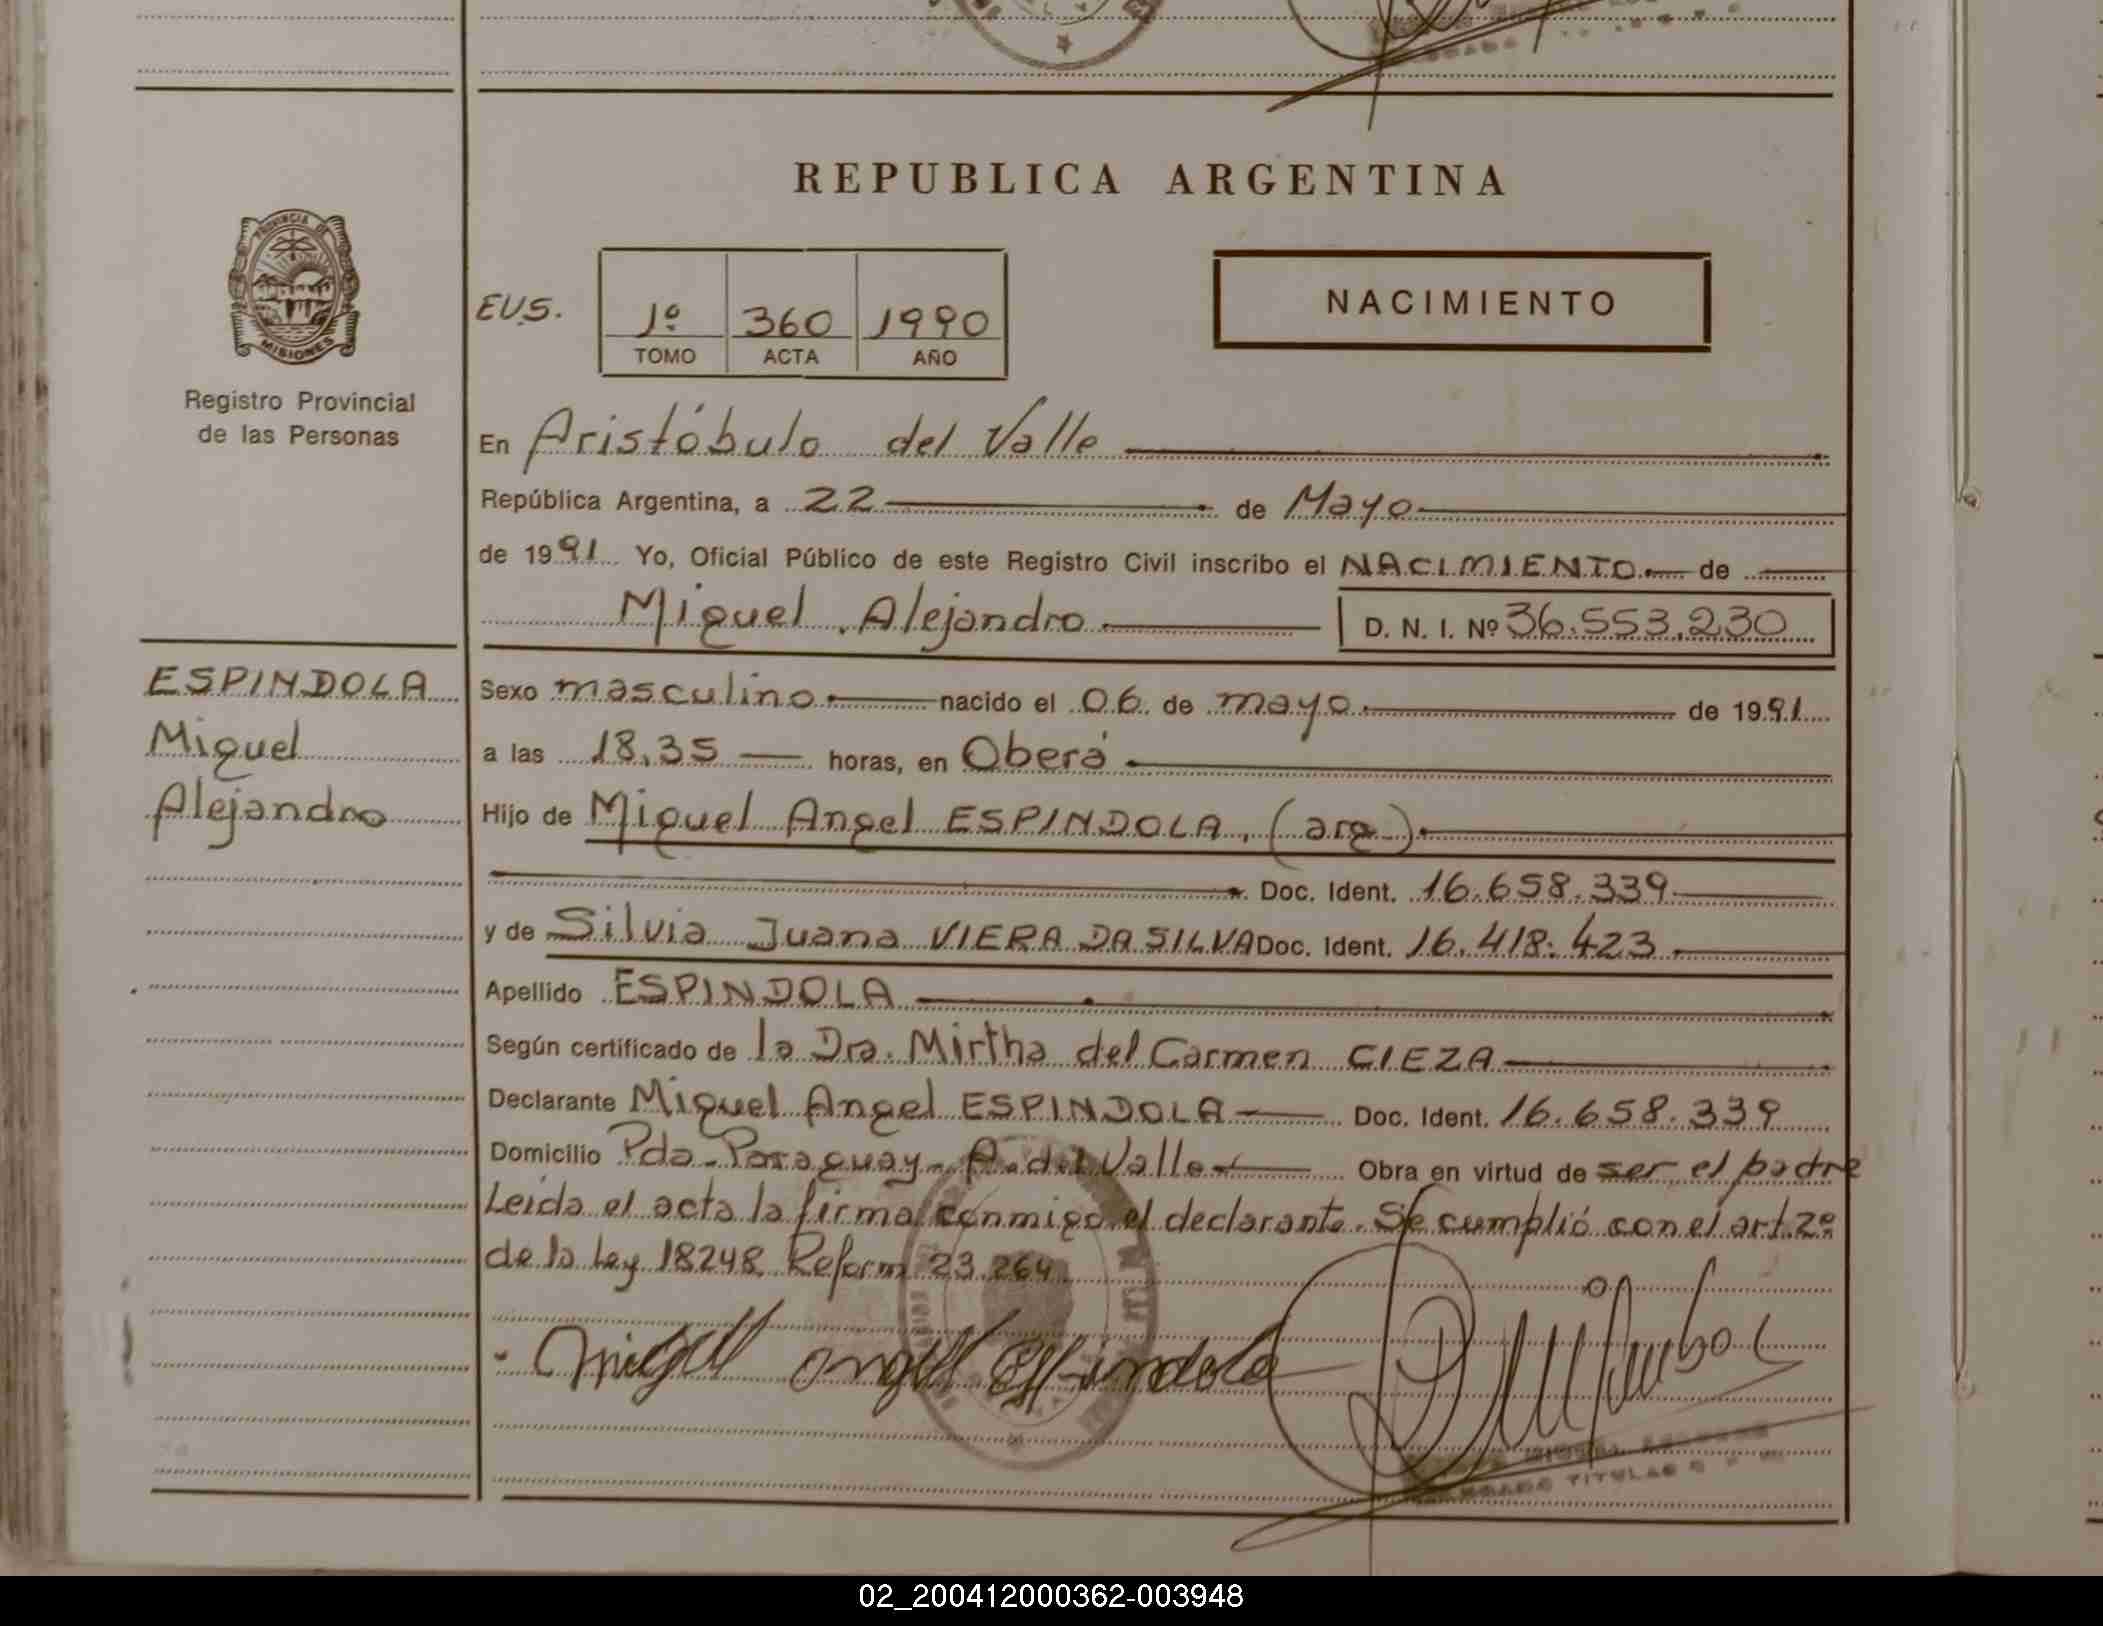 REPUBLICA ARGENTINA
PROVINCIA DE
MISIONES
Registro Provincial
de las Personas
EUS.
1º 360 1990
TOMO ACTA AÑO
NACIMIENTO
En Aristóbulo del Valle
República Argentina, a 22 de Mayo
de 1991 Yo, Oficial Público de este Registro Civil inscribo el NACIMIENTO de
Miguel Alejandro D. N. I. Nº 36.553.230
ESPINDOLA
Miguel
Alejandro
Sexo masculino nacido el 06 de mayo de 1991
a las 18,35 horas, en Oberá
Hijo de Miguel Angel ESPINDOLA, (arg)
Doc. Ident. 16.658.339
y de Silvia Juana VIERA DA SILVA Doc. Ident. 16.418.423
Apellido ESPINDOLA
Según certificado de la Dra. Mirtha del Carmen CIEZA
Declarante Miguel Angel ESPINDOLA Doc. Ident. 16.658.339
Domicilio Pda. Paraguay. A. del Valle Obra en virtud de ser el padre
Leida el acta la firma conmigo el declarante. Se cumplió con el art. 2º
de la Ley 18248 Reform 23.264
Miguel Angel Espindola
TITULAR
02_200412000362-003948